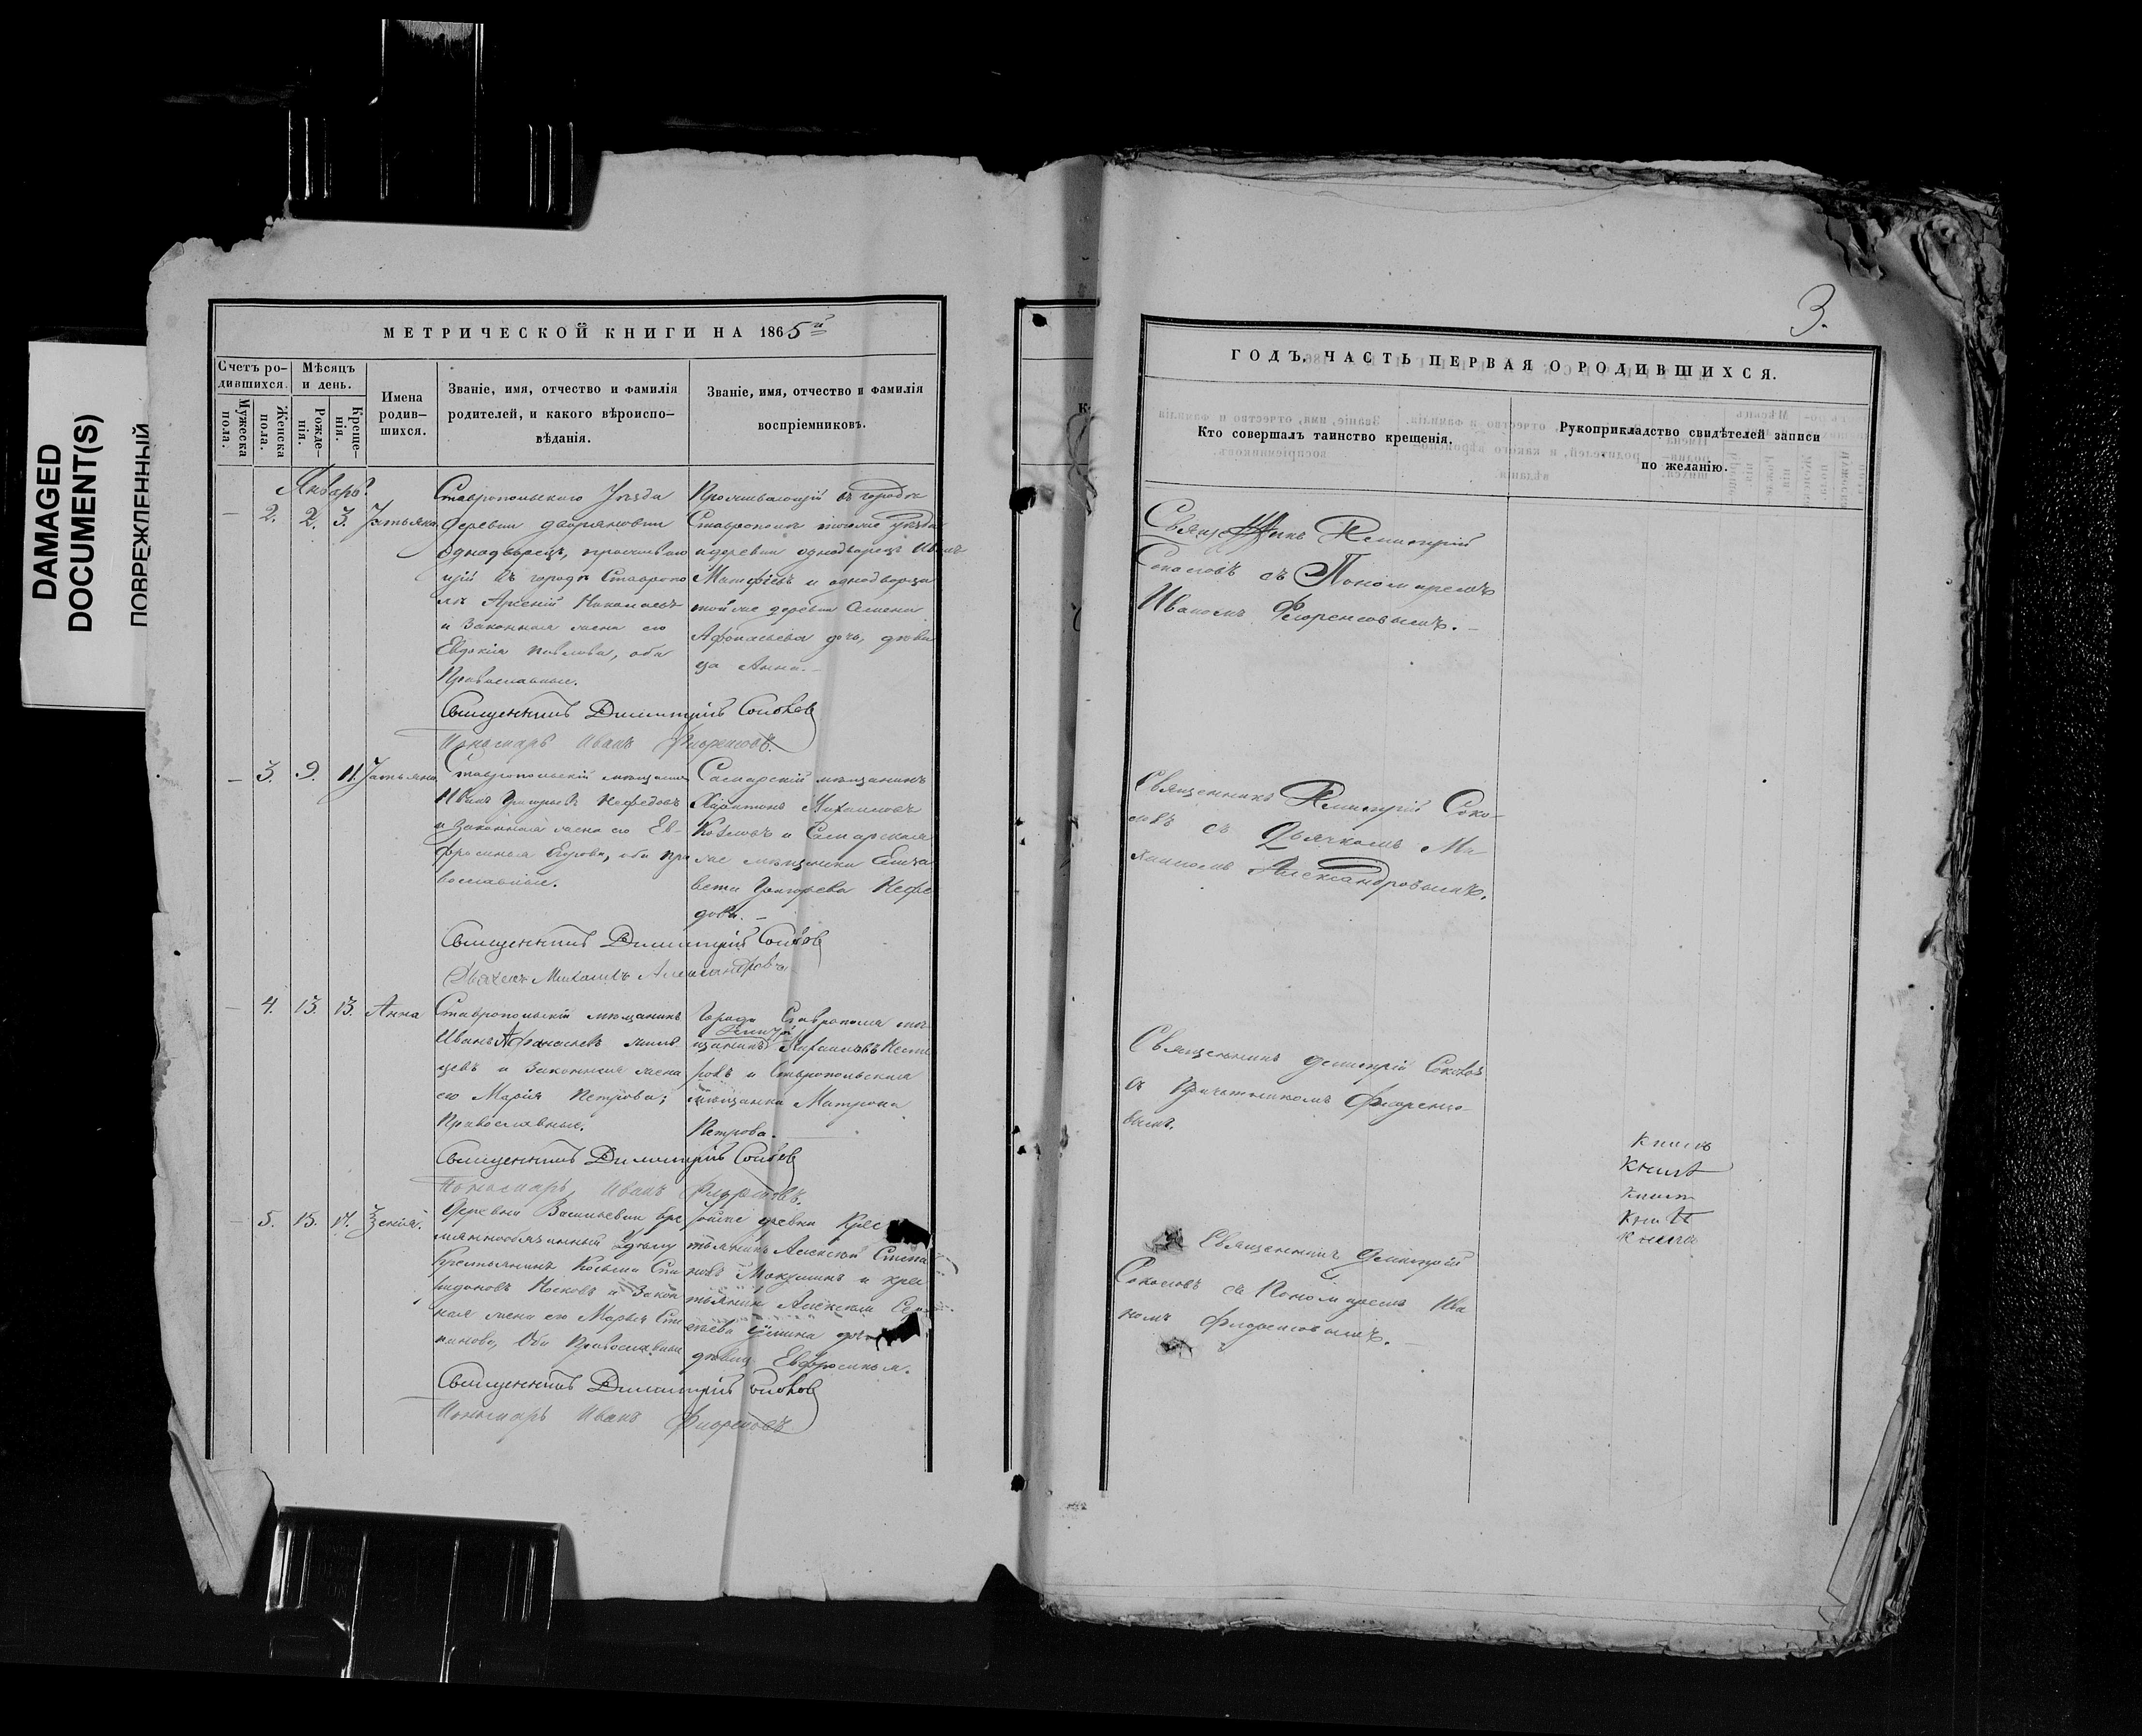 DAMAGED
DOCUMENT(S)
ПОВРЕЖДЕННЫЙ
МЕТРИЧЕСКОЙ КНИГИ НА 1865й
Счетъ ро-
дившихся.
Мужеска
пола.
Женска
пола.
Мѣсяцъ
и день.
Рожде-
нія.
Креще-
нія.
Имена
родив-
шихся.
Званіе, имя, отчество и фамилія
родителей, и какого вѣроиспо-
вѣданія.
Званіе, имя, отчество и фамилія
воспріемниковъ.
Январь.
— 2. 2. 3. Татьяна
Ставропольскаго Уѣзда
деревни
однодворецъ,
щій въ городѣ Ставропо
лѣ Арсеній Николаевъ
и законная жена его
Евдокія Павлова, оба
Православные.
Проживающій въ городѣ
Ставрополѣ тогоже уѣзда
и деревни однодворецъ Иванъ
Матфѣевъ и однодворца
тойже деревни Семена
Афонасьева дочь, дѣви
ца Анна. —
Священникъ Димитрій Соколов
Пономарь Иванъ
— 3. 9. 11. Татьяна
Ставропольскій мѣщанин
Иванъ Григорьевъ Нефедовъ
и законная жена его Ев-
фросинья Егорова, оба пра
вославные.
Самарскій мѣщанинъ
Харитонъ Михаиловъ
Козловъ и Самарская
же мѣщанка Елиза
вета Григорьева Нефе
дова. —
Священникъ Димитрій Соколов
Дьячекъ Михаилъ Александровъ
— 4. 13. 13. Анна
Ставропольскій мѣщанинъ
Иванъ Афанасьевъ
цевъ и законная жена
его Марія Петрова;
Православные.
Города Ставрополя мѣ-
щанинъ Михаиловъ
ровъ и Ставропольская
мѣщанка Матрона
Петрова.
Священникъ Димитрій Соколов
Пономарь Иванъ
— 5. 15. 17.
Деревни Васильевки вре
меннообязанный
Крестьянинъ Косьма Спи
ридоновъ Носковъ и Закон
ная жена его Марья Сте
панова, Оба Православные
Тойже деревни Крес
тьянинъ Алексѣй Степа
новъ Мокшинъ и крес
тьянина Алексея
дѣвица Евфросинья.
Священникъ Димитрій Соколов
Пономарь Иванъ
3.
ГОДЪ, ЧАСТЬ ПЕРВАЯ О РОДИВШИХСЯ.
Кто совершалъ таинство крещенія.
Рукоприкладство свидѣтелей записи
по желанію.
Священникъ Димитрій
Соколовъ съ Пономаремъ
Иваномъ Флоренсовымъ. —
Священникъ Димитрій Соко-
ловъ съ Дьячкомъ Ми-
хаиломъ Александровымъ.
Священникъ Димитрій Соколов
съ Причетникомъ Флоренсо-
вымъ.
Священникъ Димитрій
Соколовъ съ Пономаремъ Ива
номъ Флоренсовымъ. —